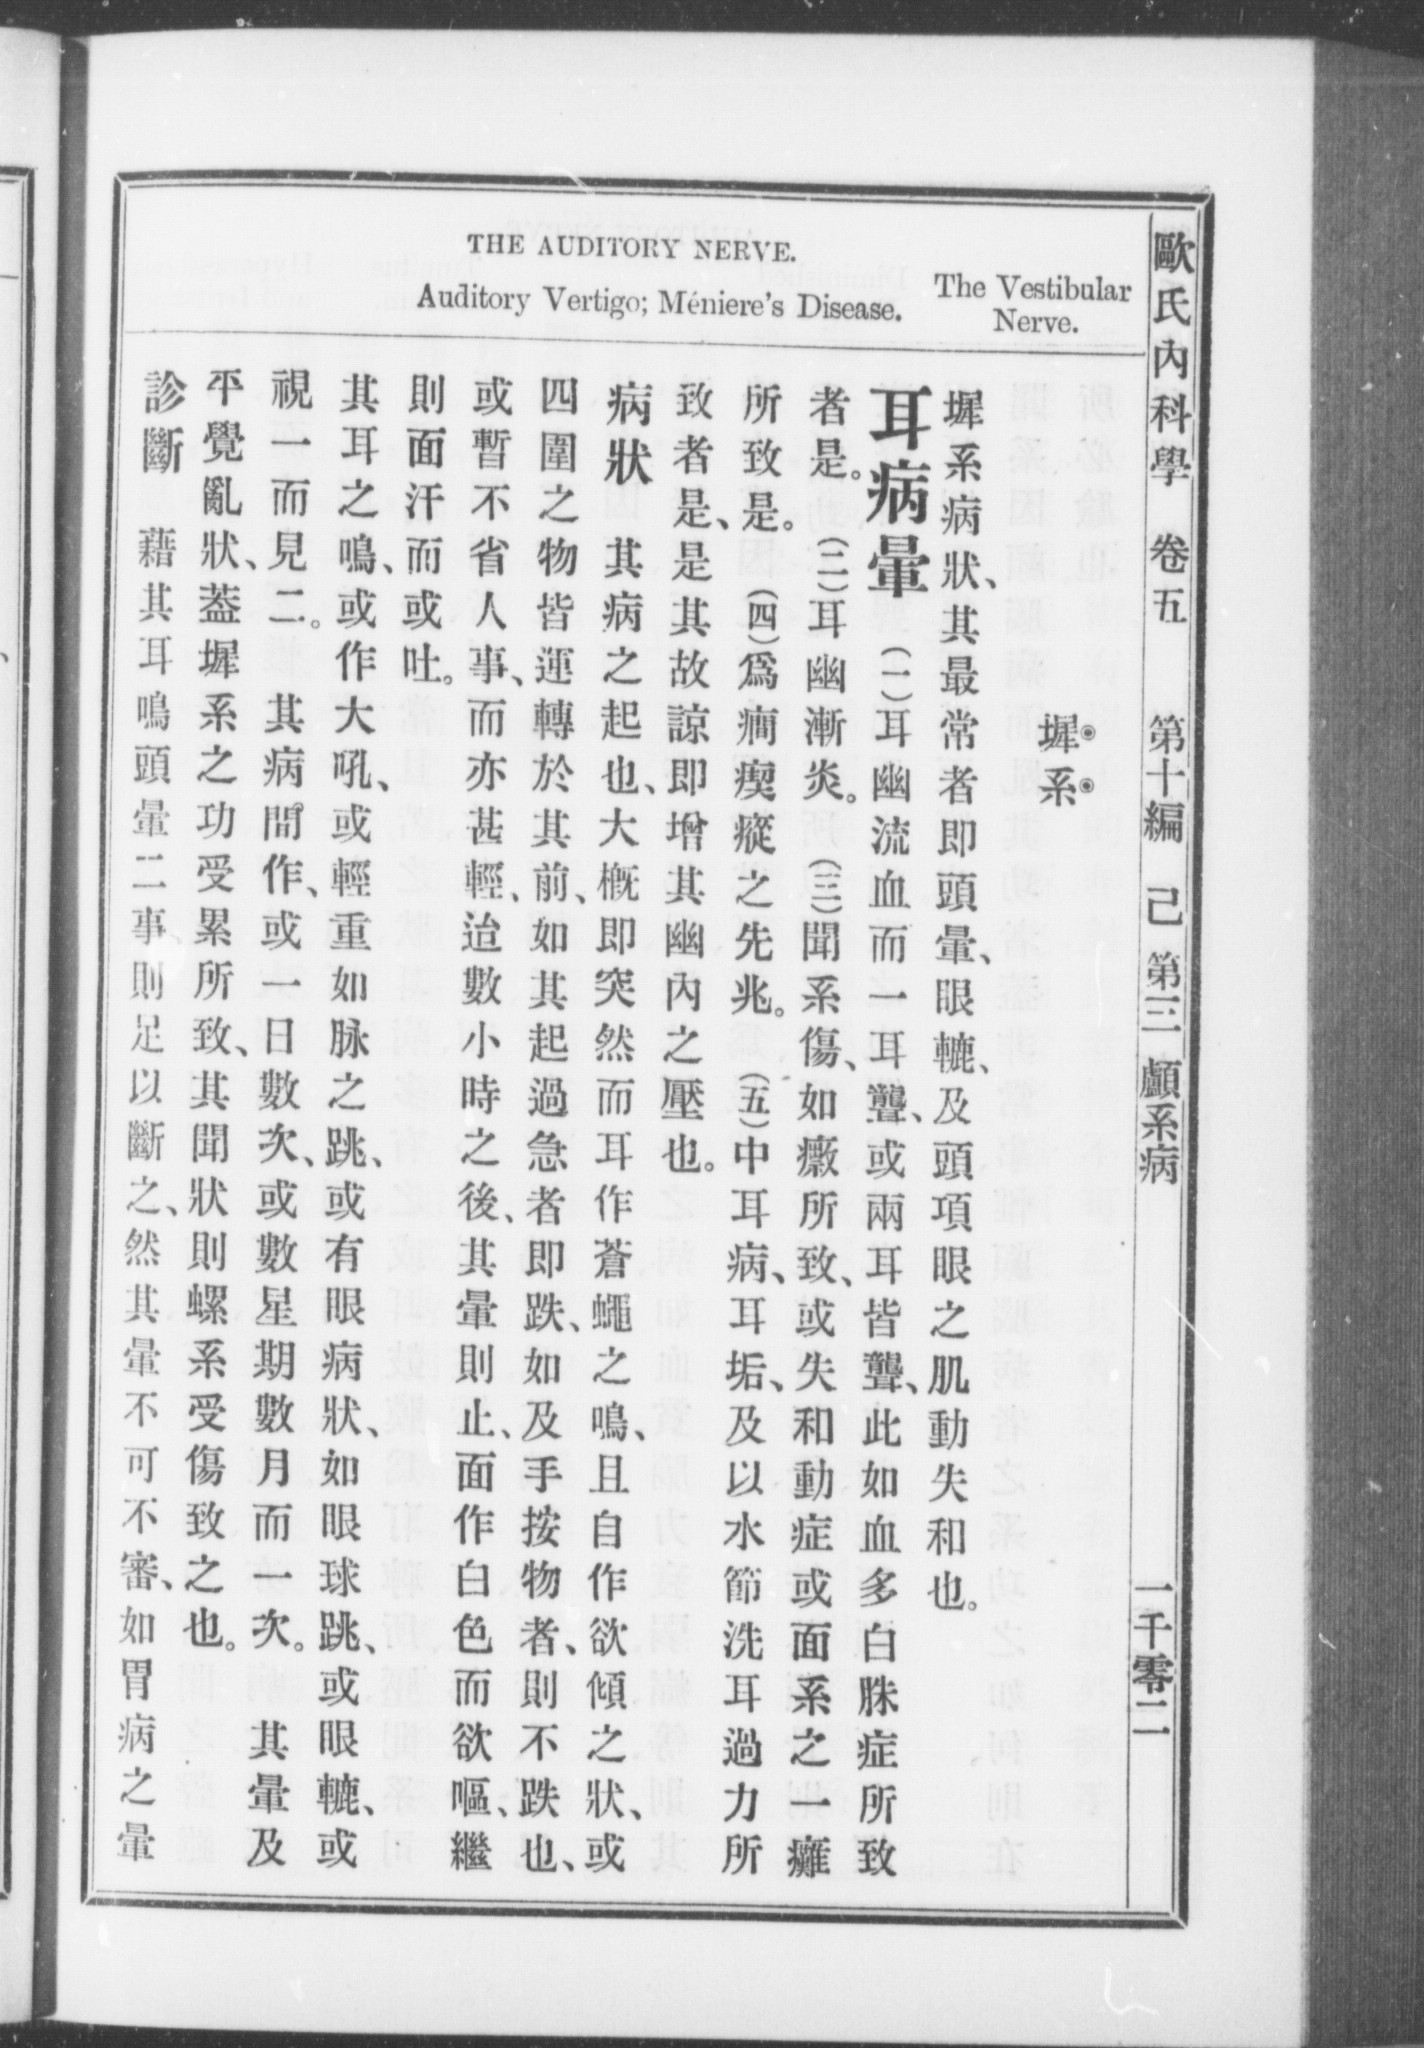 THE AUDITORY NERVE.
Auditory Vertigo; Méniere's Disease.
The Vestibular
Nerve.
歐氏內科學 卷五 第十編 己 第三 顱系病 一千零二
墀系
墀系病狀、其最常者即頭暈、眼轆、及頭項眼之肌動失和也。
耳病暈 (一)耳幽流血而一耳聾、或兩耳皆聾、此如血多白脒症所致
者是。(二)耳幽漸炎。(三)聞系傷、如癥所致、或失和動症或面系之一癱
所致是。(四)爲癎瘈瘲之先兆。(五)中耳病、耳垢、及以水節洗耳過力所
致者是、是其故諒即增其幽內之壓也。
病狀 其病之起也、大槪即突然而耳作蒼蠅之鳴、且自作欲傾之狀、或
四圍之物皆運轉於其前、如其起過急者即跌、如及手按物者、則不跌也、
或暫不省人事、而亦甚輕、迨數小時之後、其暈則止、面作白色而欲嘔、繼
則面汗而或吐。
其耳之鳴、或作大吼、或輕重如脉之跳、或有眼病狀、如眼球跳、或眼轆、或
視一而見二。其病間作、或一日數次、或數星期數月而一次。其暈及
平覺亂狀、蓋墀系之功受累所致、其聞狀則螺系受傷致之也。
診斷 藉其耳鳴頭暈二事、則足以斷之、然其暈不可不審、如胃病之暈